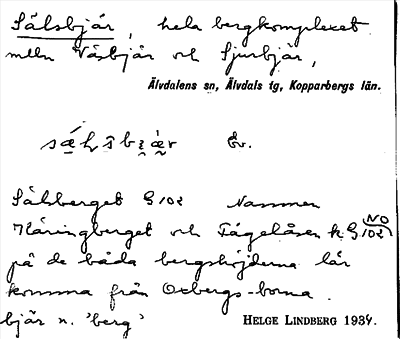 Sälsbjär, hela bergkomplexet
melln Väsbjär och Sjurbjär,
Älvdalens sn, Älvdals tg, Kopparbergs län.
Ev.
Sälsberget G 102 Namnen
Häringberget och Fågelåsen k. G 102 NO
på de båda bergshöjderna lär
komma från Oxbergs-borna.
bjär n. 'berg'
HELGE LINDBERG 1934.